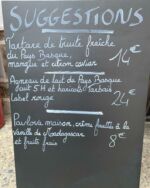 SUGGESTIONS
Tartare de truite fraîche
du Pays Basque,
mangue et citron caviar
14€
Agneau de lait du Pays Basque
cuit 5H et haricots tarbais
Label rouge
24€
Pavlova maison, crème fruitée à la
Vanille de Madagascar
et fruits frais
8€